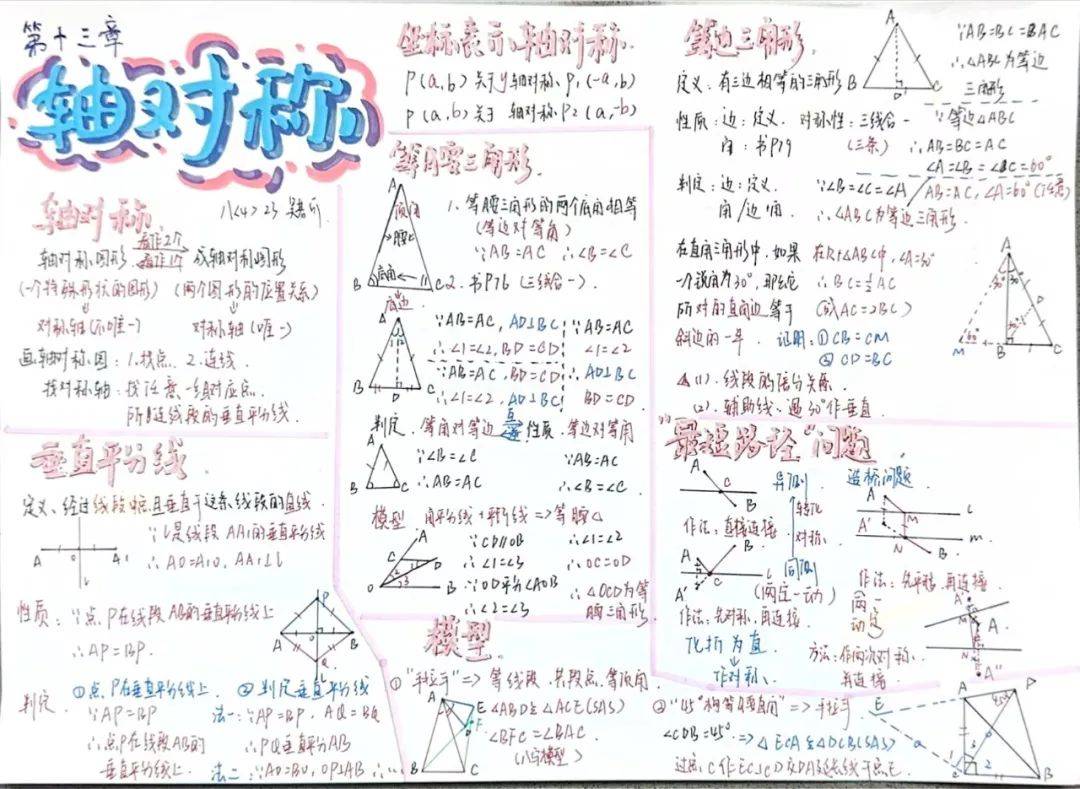 第十三章
轴对称
八<4> 23
轴对称
轴对称图形 看作2个 成轴对称图形
看作1个
(一个特殊形状的图形) (两个图形的位置关系)
对称轴(不唯一) 对称轴(唯一)
画轴对称图:1.找点. 2.连线.
找对称轴:找任意一组对应点.
所连线段的垂直平分线.
垂直平分线.
定义.经过线段中点且垂直于这条线段的直线
∵l是线段AA1的垂直平分线
∴AO=A1O, AA1⊥l
A O A1
l
性质:∵点P在线段AB的垂直平分线上
∴AP=BP.
P
A O B
Q
l
判定. ①点P在垂直平分线上. ②判定垂直平分线
∵AP=BP 法一:∵AP=BP, AQ=BQ
∴点P在线段AB的 ∴PQ垂直平分AB
垂直平分线上. 法二:∵AO=BO, OP⊥AB ∴…
坐标表示轴对称.
P(a,b)关于y轴对称P1(-a,b)
P(a,b)关于 轴对称P2(a,-b)
等腰三角形
A
顶角
腰
底角
B C
底边
1.等腰三角形的两个底角相等
(等边对等角)
∵AB=AC ∴∠B=∠C
2.书P76(三线合一).
A
1 2
B D C
∵AB=AC, AD⊥BC ∵AB=AC
∴∠1=∠2, BD=CD ∠1=∠2
∵AB=AC, BD=CD ∴AD⊥BC
∴∠1=∠2, AD⊥BC BD=CD.
判定.等角对等边 互逆 性质.等边对等角
A
B C
∵∠B=∠C ∵AB=AC
∴AB=AC ∴∠B=∠C.
模型 角平分线+平行线=>等腰△
A
C D
O B
∵CD∥OB ∴∠1=∠2
∴∠1=∠3 ∴OC=OD
∵OD平分∠AOB ∴△OCD为等
∴∠2=∠3 腰三角形.
模型.
①"手拉手"=>等线段.共段点.等顶角.
A
E
D
F
B C
△ABD≌△ACE(SAS)
∠BFC=∠BAC
(八字模型)
②"45°相等+垂直"=>手拉手
∠CDB=45° =>△ECA≌△DCB(SAS)
过点C作EC⊥CD交DA延长线于点E.
等边三角形.
定义.有三边相等的三角形
A
B D C
∵AB=BC=AC
∴△ABC为等边
三角形
性质:边:定义. 对称性:三线合一
角:书P79 (三条)
∵等边△ABC
∴AB=BC=AC
∠A=∠B=∠C=60°
判定:边:定义.
角/边角.
∵∠B=∠C=∠A AB=AC,∠A=60°(任意)
∴△ABC为等边三角形
在直角三角形中.如果
一个锐角为30°,那么它
所对的直角边等于
斜边的一半.
在Rt△ABC中,∠A=30°
∴BC=½AC
(或AC=2BC)
证明.①CB=CM
②CD=BC
A
30° 30°
D
60°
M B C
△(1).线段的倍分关系.
(2).辅助线.遇30°作垂直
"最短路径"问题
A
C
B
异侧
作法:直接连接.
转化
对称
同侧
(两定一动)
A B
C l
A'
作法:先对称.再连接.
化折为直
作对称
造桥问题
A
A' M l
N m
B
作法:先平移.再连接.
两动
一定
A'
M A
N
A"
方法:作两次对称
再连接.
E A D
45°
a
3
2
C B